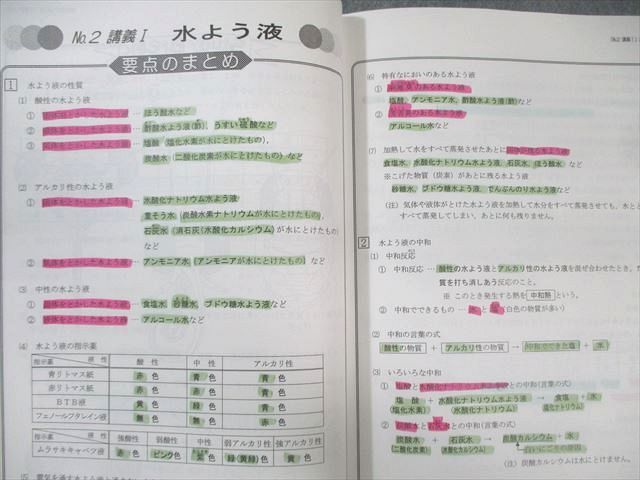 No.2 講義Ⅰ 水よう液
要点のまとめ
1 水よう液の性質
(1) 酸性の水よう液
① 固体をとかした水よう液 … ほう酸水など
② 液体をとかした水よう液 … 酢酸水よう液(酢)、うすい硫酸など
③ 気体をとかした水よう液 … 塩酸(塩化水素が水にとけたもの)、
炭酸水(二酸化炭素が水にとけたもの)など
(2) アルカリ性の水よう液
① 固体をとかした水よう液 … 水酸化ナトリウム水よう液
重そう水(炭酸水素ナトリウムが水にとけたもの)、
石灰水(消石灰(水酸化カルシウム)が水にとけたもの)
など
② 気体をとかした水よう液 … アンモニア水(アンモニアが水にとけたもの)など
(3) 中性の水よう液
① 固体をとかした水よう液 … 食塩水、砂糖水、ブドウ糖水よう液など
② 液体をとかした水よう液 … アルコール水など
(4) 水よう液の指示薬
指示薬 液性 酸性 中性 アルカリ性
青リトマス紙 赤色 青色 青色
赤リトマス紙 赤色 赤色 青色
BTB液 黄色 緑色 青色
フェノールフタレイン液 無色 無色 赤色
指示薬 液性 強酸性 弱酸性 中性 弱アルカリ性 強アルカリ性
ムラサキキャベツ液 赤色 ピンク色 紫色 緑(黄緑)色 黄色
No.2 講義Ⅰ
(6) 特有なにおいのある水よう液
① のある水よう液
塩酸、アンモニア水、酢酸水よう液(酢)など
② のある水よう液
アルコール水など
(7) 加熱して水をすべて蒸発させたあとに が残る水よう液
食塩水、水酸化ナトリウム水よう液、石灰水、ほう酸水 など
※こげた物質(炭素)があとに残る水よう液
砂糖水、ブドウ糖水よう液、でんぷんのり水よう液など
(注) 気体や液体がとけた水よう液を加熱して水分をすべて蒸発させても、水と
すべて蒸発してしまい、あとに何も残りません。
2 水よう液の中和
(1) 中和反応
① 中和反応 … 酸性の水よう液とアルカリ性の水よう液を混ぜ合わせたとき、た
質を打ち消しあう反応のこと。
※ このとき発生する熱を 中和熱 という。
② 中和でできるもの … 水と塩(白色の物質が多い)
(2) 中和の言葉の式
酸性の物質 + アルカリ性の物質 → 中和でできた塩 + 水
(3) いろいろな中和
① 塩酸と水酸化ナトリウム水よう液との中和(言葉の式)
塩酸 + 水酸化ナトリウム水よう液 → 食塩 + 水
(塩化水素) (水酸化ナトリウム) (塩化ナトリウム)
② 炭酸水と石灰水との中和(言葉の式)
炭酸水 + 石灰水 → 炭酸カルシウム + 水
(二酸化炭素) (水酸化カルシウム) 白いにごりの原因
(注) 炭酸カルシウムは水にとけません。